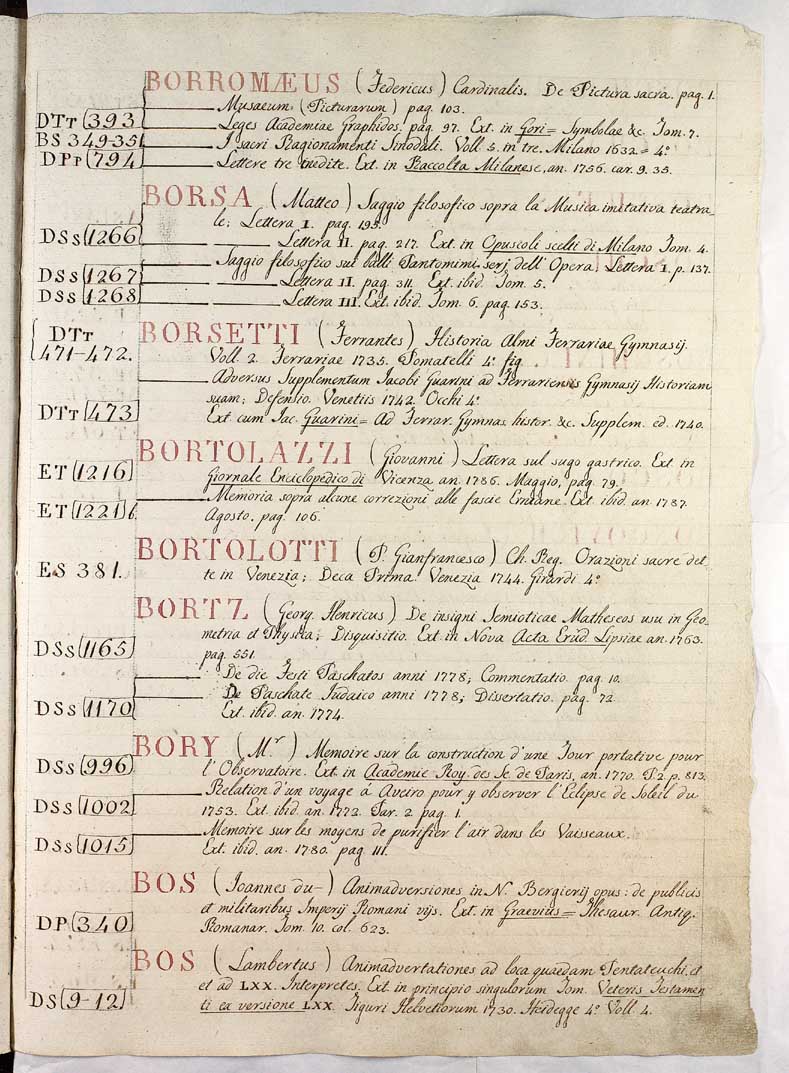 BORROMÆUS (Federicus) Cardinalis. De Pictura sacra. pag. 1.
Musaeum (Picturarum) pag. 103.
DTt 393 Leges Academiae Graphidos. pag. 97. Ext. in Gori= Symbolae &c. Tom. 7.
BS 349-351 I sacri Ragionamenti Sinodali. Voll. 3. in tre. Milano 1632 = 4º
DPp 794 Lettere tre inedite. Ext. in Raccolta Milanese, an. 1756. car. 9. 35.
BORSA (Matteo) Saggio filosofico sopra la Musica imitativa teatra-
le; Lettera I. pag. 195.
DSs 1266 Lettera II. pag. 217. Ext. in Opuscoli scelti di Milano Tom. 4.
Saggio filosofico sui balli Pantomimi serj dell' Opera, Lettera I. p. 137.
DSs 1267 Lettera II. pag. 311. Ext. ibid. Tom. 5.
DSs 1268 Lettera III. Ext. ibid. Tom. 6. pag. 153.
DTt BORSETTI (Ferrantes) Historia Almi Ferrariae Gymnasij.
471-472. Voll. 2. Ferrariae 1735. Pomatelli 4º fig.
Adversus Supplementum Jacobi Guarini ad Ferrariensis Gymnasij Historiam
suam; Defensio. Venetiis 1742. Occhi 4º
DTt 473 Ext. cum Jac. Guarini= Ad Ferrar. Gymnas. histor. &c. Supplem. ed. 1740.
BORTOLAZZI (Giovanni) Lettera sul sugo gastrico. Ext. in
ET 1216 Giornale Enciclopedico di Vicenza an. 1786. Maggio, pag. 79.
Memoria sopra alcune correzioni alle fascie Erniane. Ext. ibid. an. 1787.
ET 1221 b Agosto. pag. 106.
BORTOLOTTI (P. Gianfrancesco) Ch. Reg. Orazioni sacre det-
ES 381. te in Venezia; Deca Prima. Venezia 1744. Girardi 4º
BORTZ (Georg. Henricus) De insigni Semioticae Matheseos usu in Geo-
metria et Physica; Disquisitio. Ext. in Nova Acta Erud. Lipsiae an. 1763.
DSs 1165 pag. 551.
De die Festi Paschatos anni 1778; Commentatio. pag. 10.
De Paschate Judaico anni 1778; Dissertatio. pag. 72.
DSs 1170 Ext. ibid. an. 1774.
BORY (Mr) Memoire sur la construction d'une Tour portative pour
DSs 996 l'Observatoire. Ext. in Academie Roy. des Sc. de Paris, an. 1770. P. 2. p. 813.
Relation d'un voyage à Aveiro pour y observer l'Eclipse de Soleil du
DSs 1002 1753. Ext. ibid. an. 1772. Par. 2. pag. 1.
Memoire sur les moyens de purifier l'air dans les Vaisseaux.
DSs 1015 Ext. ibid. an. 1780. pag. 111.
BOS (Joannes du-) Animadversiones in N. Bergierij opus: de publicis
et militaribus Imperij Romani vijs. Ext. in Graevius= Thesaur. Antiq.
DP 340 Romanar. Tom. 10. col. 623.
BOS (Lambertus) Animadvertationes ad loca quaedam Pentateuchi, et
et ad LXX. Interpretes. Ext. in principio singulorum Tom. Veteris Testamen
DS 9-12 ti ex versione LXX. Tiguri Helvetiorum 1730. Heidegge 4º Voll. 4.